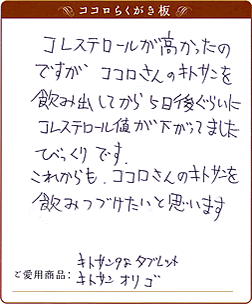 ココロらくがき板
コレステロールが高かったの
ですが ココロさんのキトサンを
飲み出してから5日後ぐらいに
コレステロール値が下がってました
びっくりです.
これからも、ココロさんのキトサンを
飲みつづけたいと思います
ご愛用商品:
キトサン タブレット
キトサン オリゴ